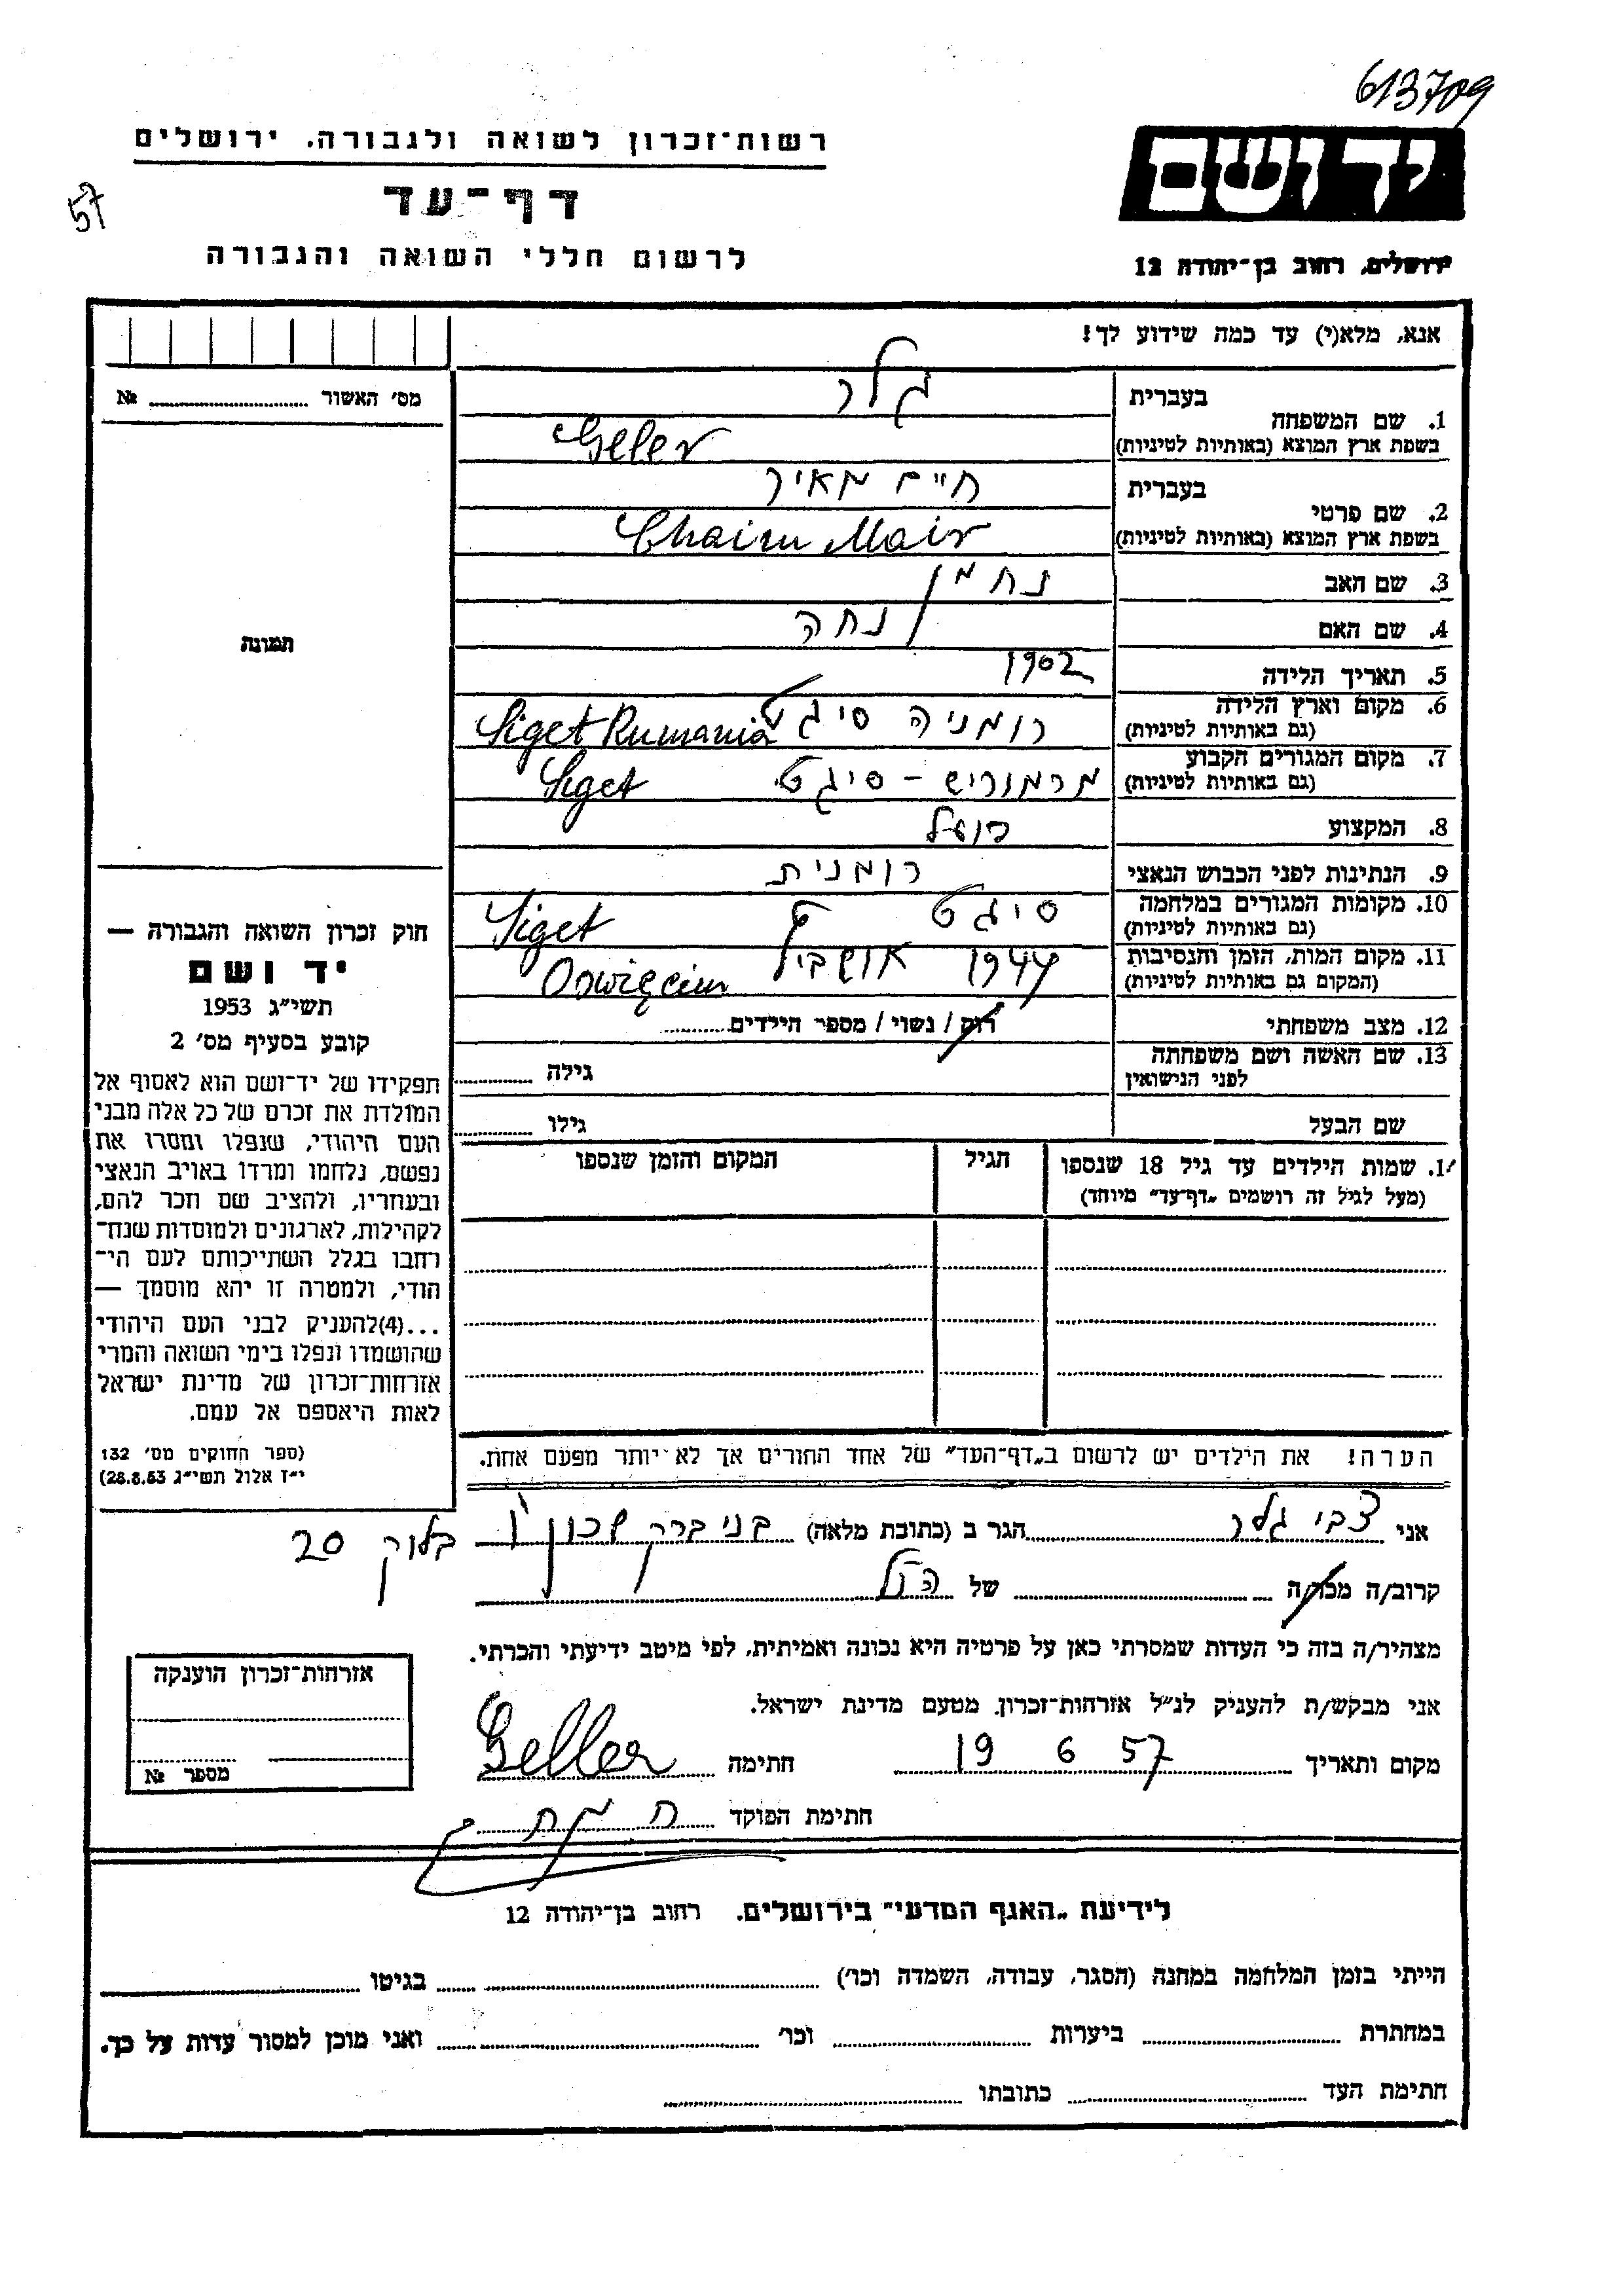 613709
רשות־זכרון לשואה ולגבורה. ירושלים
יד ושם
דף־עד
57
לרשום חללי השואה והגבורה
ירושלים, רחוב בן־יהודה 12
אנא, מלא(י) עד כמה שידוע לך!
מס׳ האשור № 
בעברית
גלר
1. שם המשפחה
בשפת ארץ המוצא (באותיות לטיניות)
Geler
בעברית
חיים מאיר
2. שם פרטי
בשפת ארץ המוצא (באותיות לטיניות)
Chaim Mair
3. שם האב
נחמן
4. שם האם
נחה
5. תאריך הלידה
1902
6. מקום וארץ הלידה
(גם באותיות לטיניות)
רומניה סיגט Siget Rumania
7. מקום המגורים הקבוע
(גם באותיות לטיניות)
מרמוריש - סיגט Siget
8. המקצוע
פועל
9. הנתינות לפני הכבוש הנאצי
רומנית
10. מקומות המגורים במלחמה
(גם באותיות לטיניות)
סיגט Siget
11. מקום המות, הזמן והנסיבות
(המקום גם באותיות לטיניות)
1944 אושביץ Oswięcim
12. מצב משפחתי
רוק / נשוי / מספר הילדים
13. שם האשה ושם משפחתה
לפני הנישואין
גילה
שם הבעל
גילו
1. שמות הילדים עד גיל 18 שנספו
(מעל לגיל זה רושמים „דף־עד” מיוחד)
הגיל
המקום והזמן שנספו
תמונה
חוק זכרון השואה והגבורה —
יד ושם
תשי״ג 1953
קובע בסעיף מס׳ 2
תפקידו של יד־ושם הוא לאסוף אל
המולדת את זכרם של כל אלה מבני
העם היהודי, שנפלו ומסרו את
נפשם, נלחמו ומרדו באויב הנאצי
ובעוזריו, ולהציב שם וזכר להם,
לקהילות, לארגונים ולמוסדות שנח־
רחבו בגלל השתייכותם לעם הי־
הודי, ולמטרה זו יהא מוסמך —
...(4)להעניק לבני העם היהודי
שהושמדו ונפלו בימי השואה והמרי
אזרחות־זכרון של מדינת ישראל
לאות היאספם אל עמם.
(ספר החוקים מס׳ 132
י״ז אלול תשי״ג 28.8.53)
הערה! את הילדים יש לרשום ב„דף־העד” של אחד ההורים אך לא יותר מפעם אחת.
אני צבי גלר הגר ב (כתובת מלאה) בני ברק שכון ו' בלוק 20
קרוב/ה מכר/ה של הנ״ל
מצהיר/ה בזה כי העדות שמסרתי כאן על פרטיה היא נכונה ואמיתית, לפי מיטב ידיעתי והכרתי.
אני מבקש/ת להעניק לנ״ל אזרחות־זכרון מטעם מדינת ישראל.
מקום ותאריך 19 6 57 חתימה Geller
חתימת הפוקד
אזרחות־זכרון הוענקה
מספר №
לידיעת „האגף המדעי” בירושלים. רחוב בן־יהודה 12
הייתי בזמן המלחמה במחנה (הסגר, עבודה, השמדה וכו׳) בגיטו
במחתרת ביערות וכו׳ ואני מוכן למסור עדות על כך.
חתימת העד כתובתו